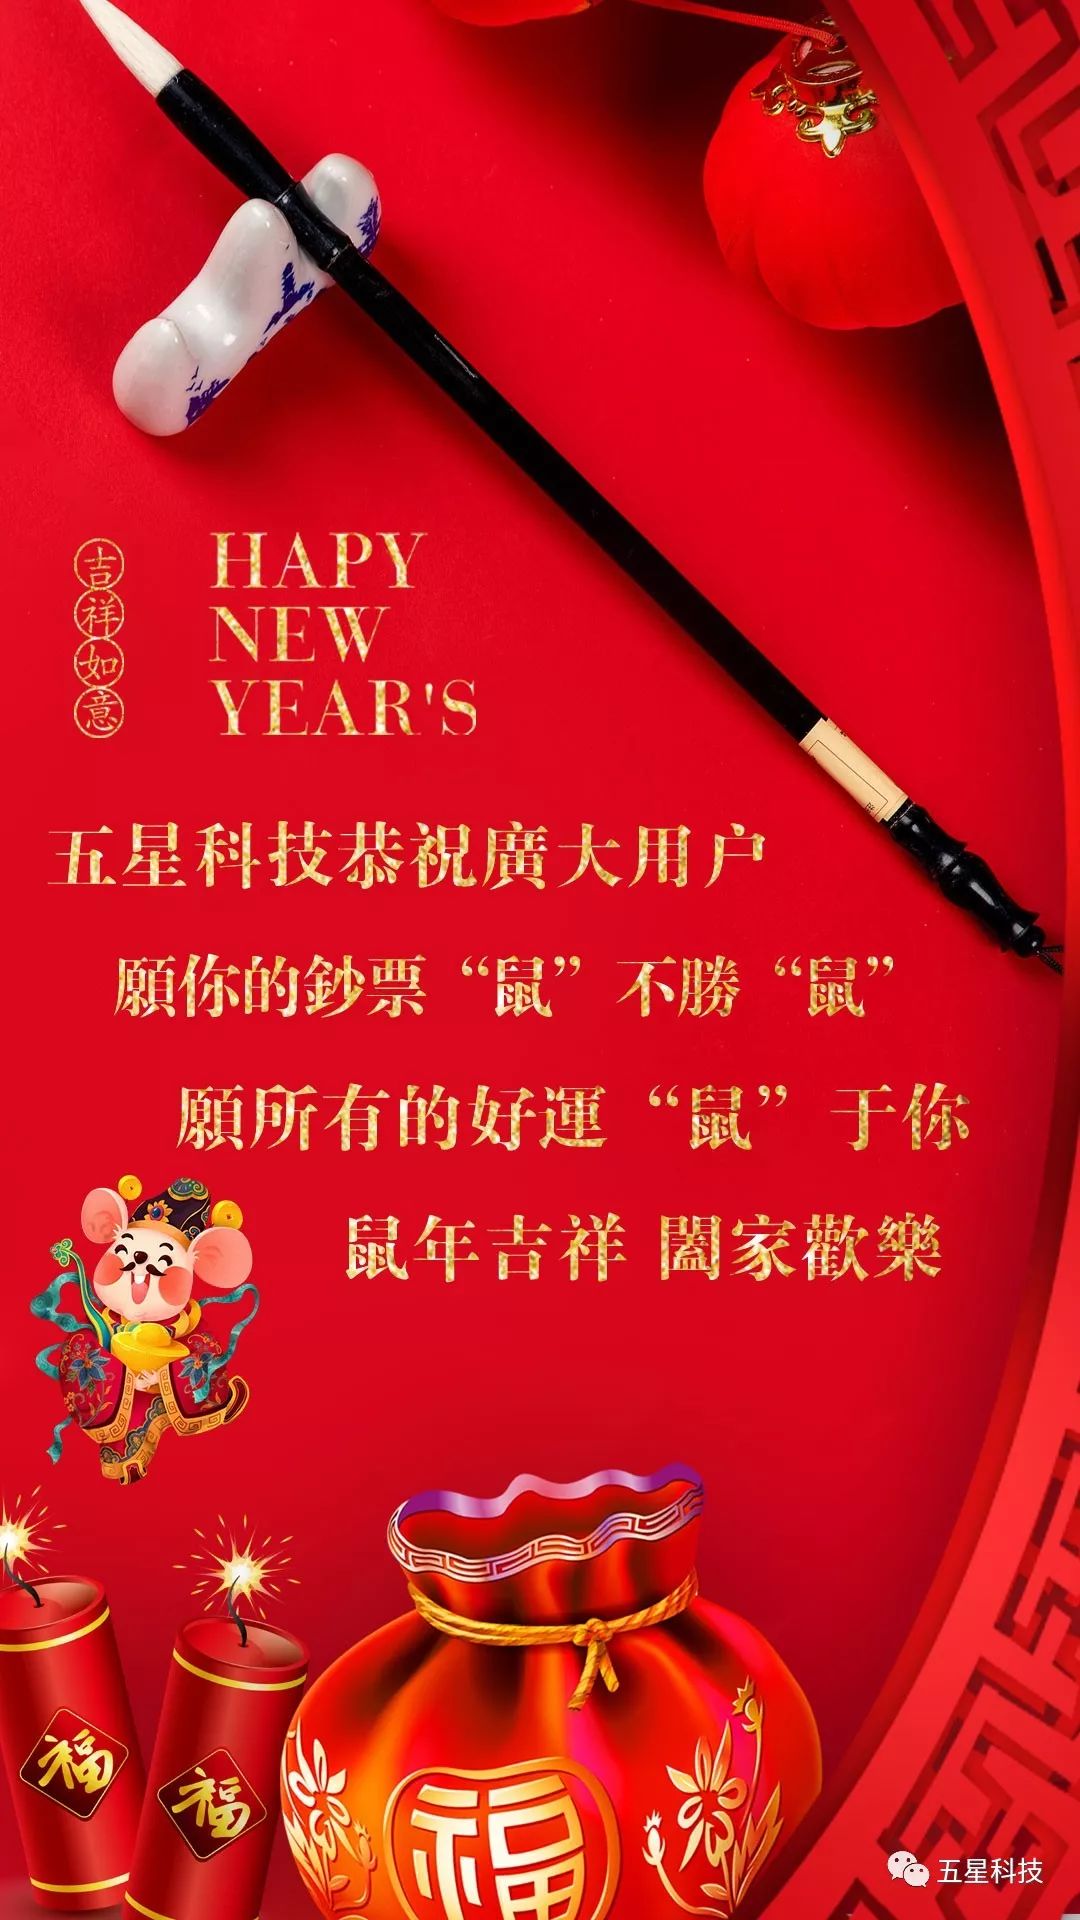 吉祥如意
HAPY
NEW
YEAR'S
五星科技恭祝廣大用户
願你的鈔票“鼠”不勝“鼠”
願所有的好運“鼠”于你
鼠年吉祥 闔家歡樂
福
福
福
五星科技